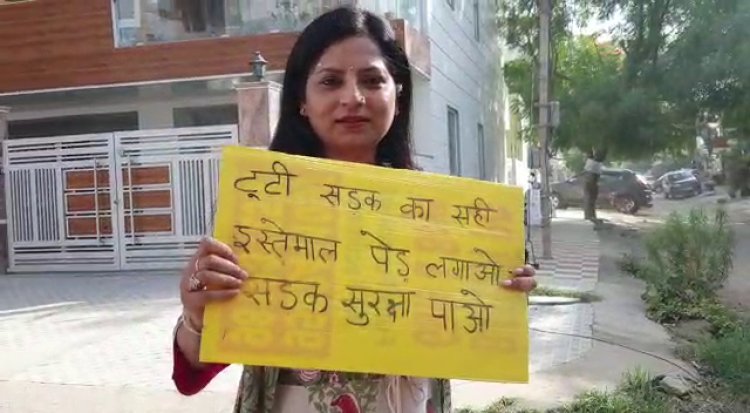 टूटी सड़क का सही
इस्तेमाल पेड़ लगाओ
सड़क सुरक्षा पाओ